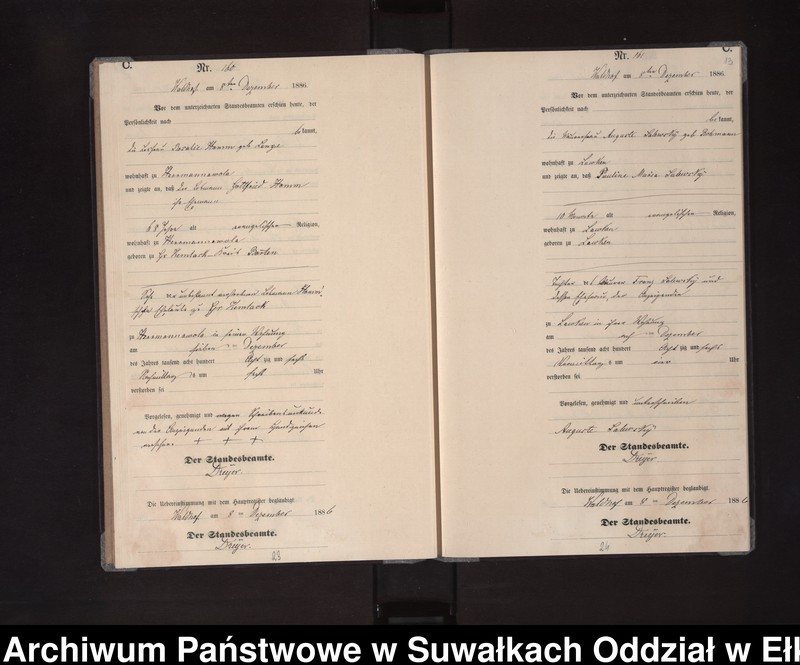 C.
Nr. 160
Waldhof am 8ten Dezember 1886.
Vor dem unterzeichneten Standesbeamten erschien heute, der
Persönlichkeit nach
be kannt,
die Rosalie Hamm geb Lange
wohnhaft zu Hermannawola
und zeigte an, daß der Gottfried Hamm
ihr Ehemann
68 Jahre alt evangelischer Religion,
wohnhaft zu Hermannawola
geboren zu Gr Kemlack Kreis
Sohn der
Eheleute zu Gr Kemlack
zu Hermannawola in seiner Wohnung
am sieben ten Dezember
des Jahres tausend acht hundert Acht zig und sechs
Nachmittag s um sechs Uhr
verstorben sei
Vorgelesen, genehmigt und wegen
der Anzeigenden mit ihrem Handzeichen
versehen + + +
Der Standesbeamte.
Dreyer.
Die Uebereinstimmung mit dem Hauptregister beglaubigt
Waldhof am 8 ten Dezember 1886
Der Standesbeamte.
Dreyer.
23
C.
13
Nr. 161
Waldhof am 8ten Dezember 1886.
Vor dem unterzeichneten Standesbeamten erschien heute, der
Persönlichkeit nach
be kannt,
die Auguste geb
wohnhaft zu Lawken
und zeigte an, daß Pauline Maria
10 Monate alt evangelischer Religion,
wohnhaft zu Lawken
geboren zu Lawken
Tochter des Maurer Franz und
dessen Ehefrau, der Anzeigenden
zu Lawken in ihrer Wohnung
am Dezember
des Jahres tausend acht hundert Acht zig und sechs
Vormittag s um vier Uhr
verstorben sei
Vorgelesen, genehmigt und unterschrieben
Auguste
Der Standesbeamte.
Dreyer.
Die Uebereinstimmung mit dem Hauptregister beglaubigt.
Waldhof am 8 ten Dezember 1886
Der Standesbeamte.
Dreyer.
24
Archiwum Państwowe w Suwałkach Oddział w Ełk